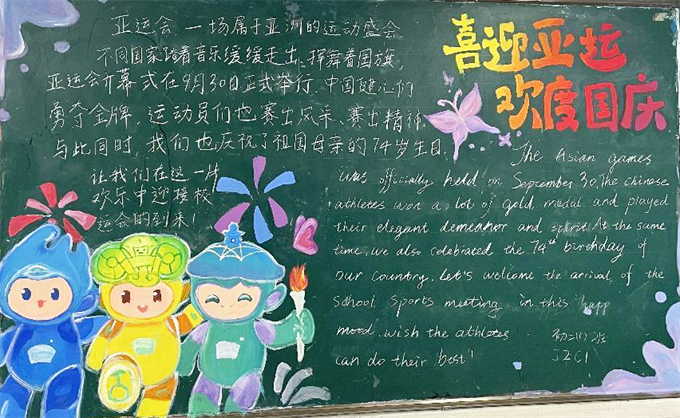 喜迎亚运
欢度国庆
亚运会,一场属于亚洲的运动盛会
不同国家踏着音乐缓缓走出,挥舞着国旗,
亚运会开幕式在9月30日正式举行,中国健儿们
勇夺金牌,运动员们也赛出风采、赛出精神,
与此同时,我们也庆祝了祖国母亲的74岁生日.
让我们在这一片
欢乐中迎接校
运会的到来!
The Asian games
was officially held on September 30, The chinese
athletes won a lot of gold madal and played
their elegant demeanor and spirit. At the same
time, we also celebrated the 74th birthday of
our country. Let's welcome the arrival of the
school sports meeting in this happ
mood. wish the athletes
can do their best!
J2C1